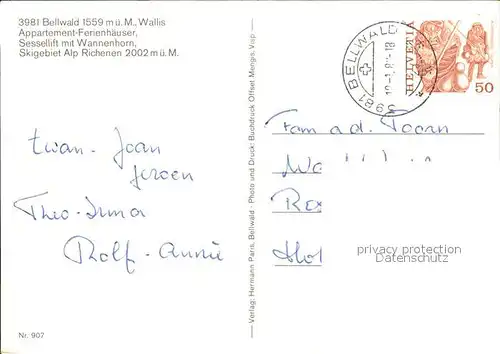 3981 Bellwald 1559 m ü. M., Wallis
Appartement-Ferienhäuser,
Sessellift mit Wannenhorn,
Skigebiet Alp Richenen 2002 m ü. M.
3981 BELLWALD
HELVETIA
50
Verlag: Hermann Paris, Bellwald - Photo und Druck: Buchdruck Offset Mengis, Visp
Fam a.d. Toorn
Rex
Hol
privacy protection
Datenschutz
Joan
Jeroen
Theo-Irma
Rolf-Annie
Nr. 907